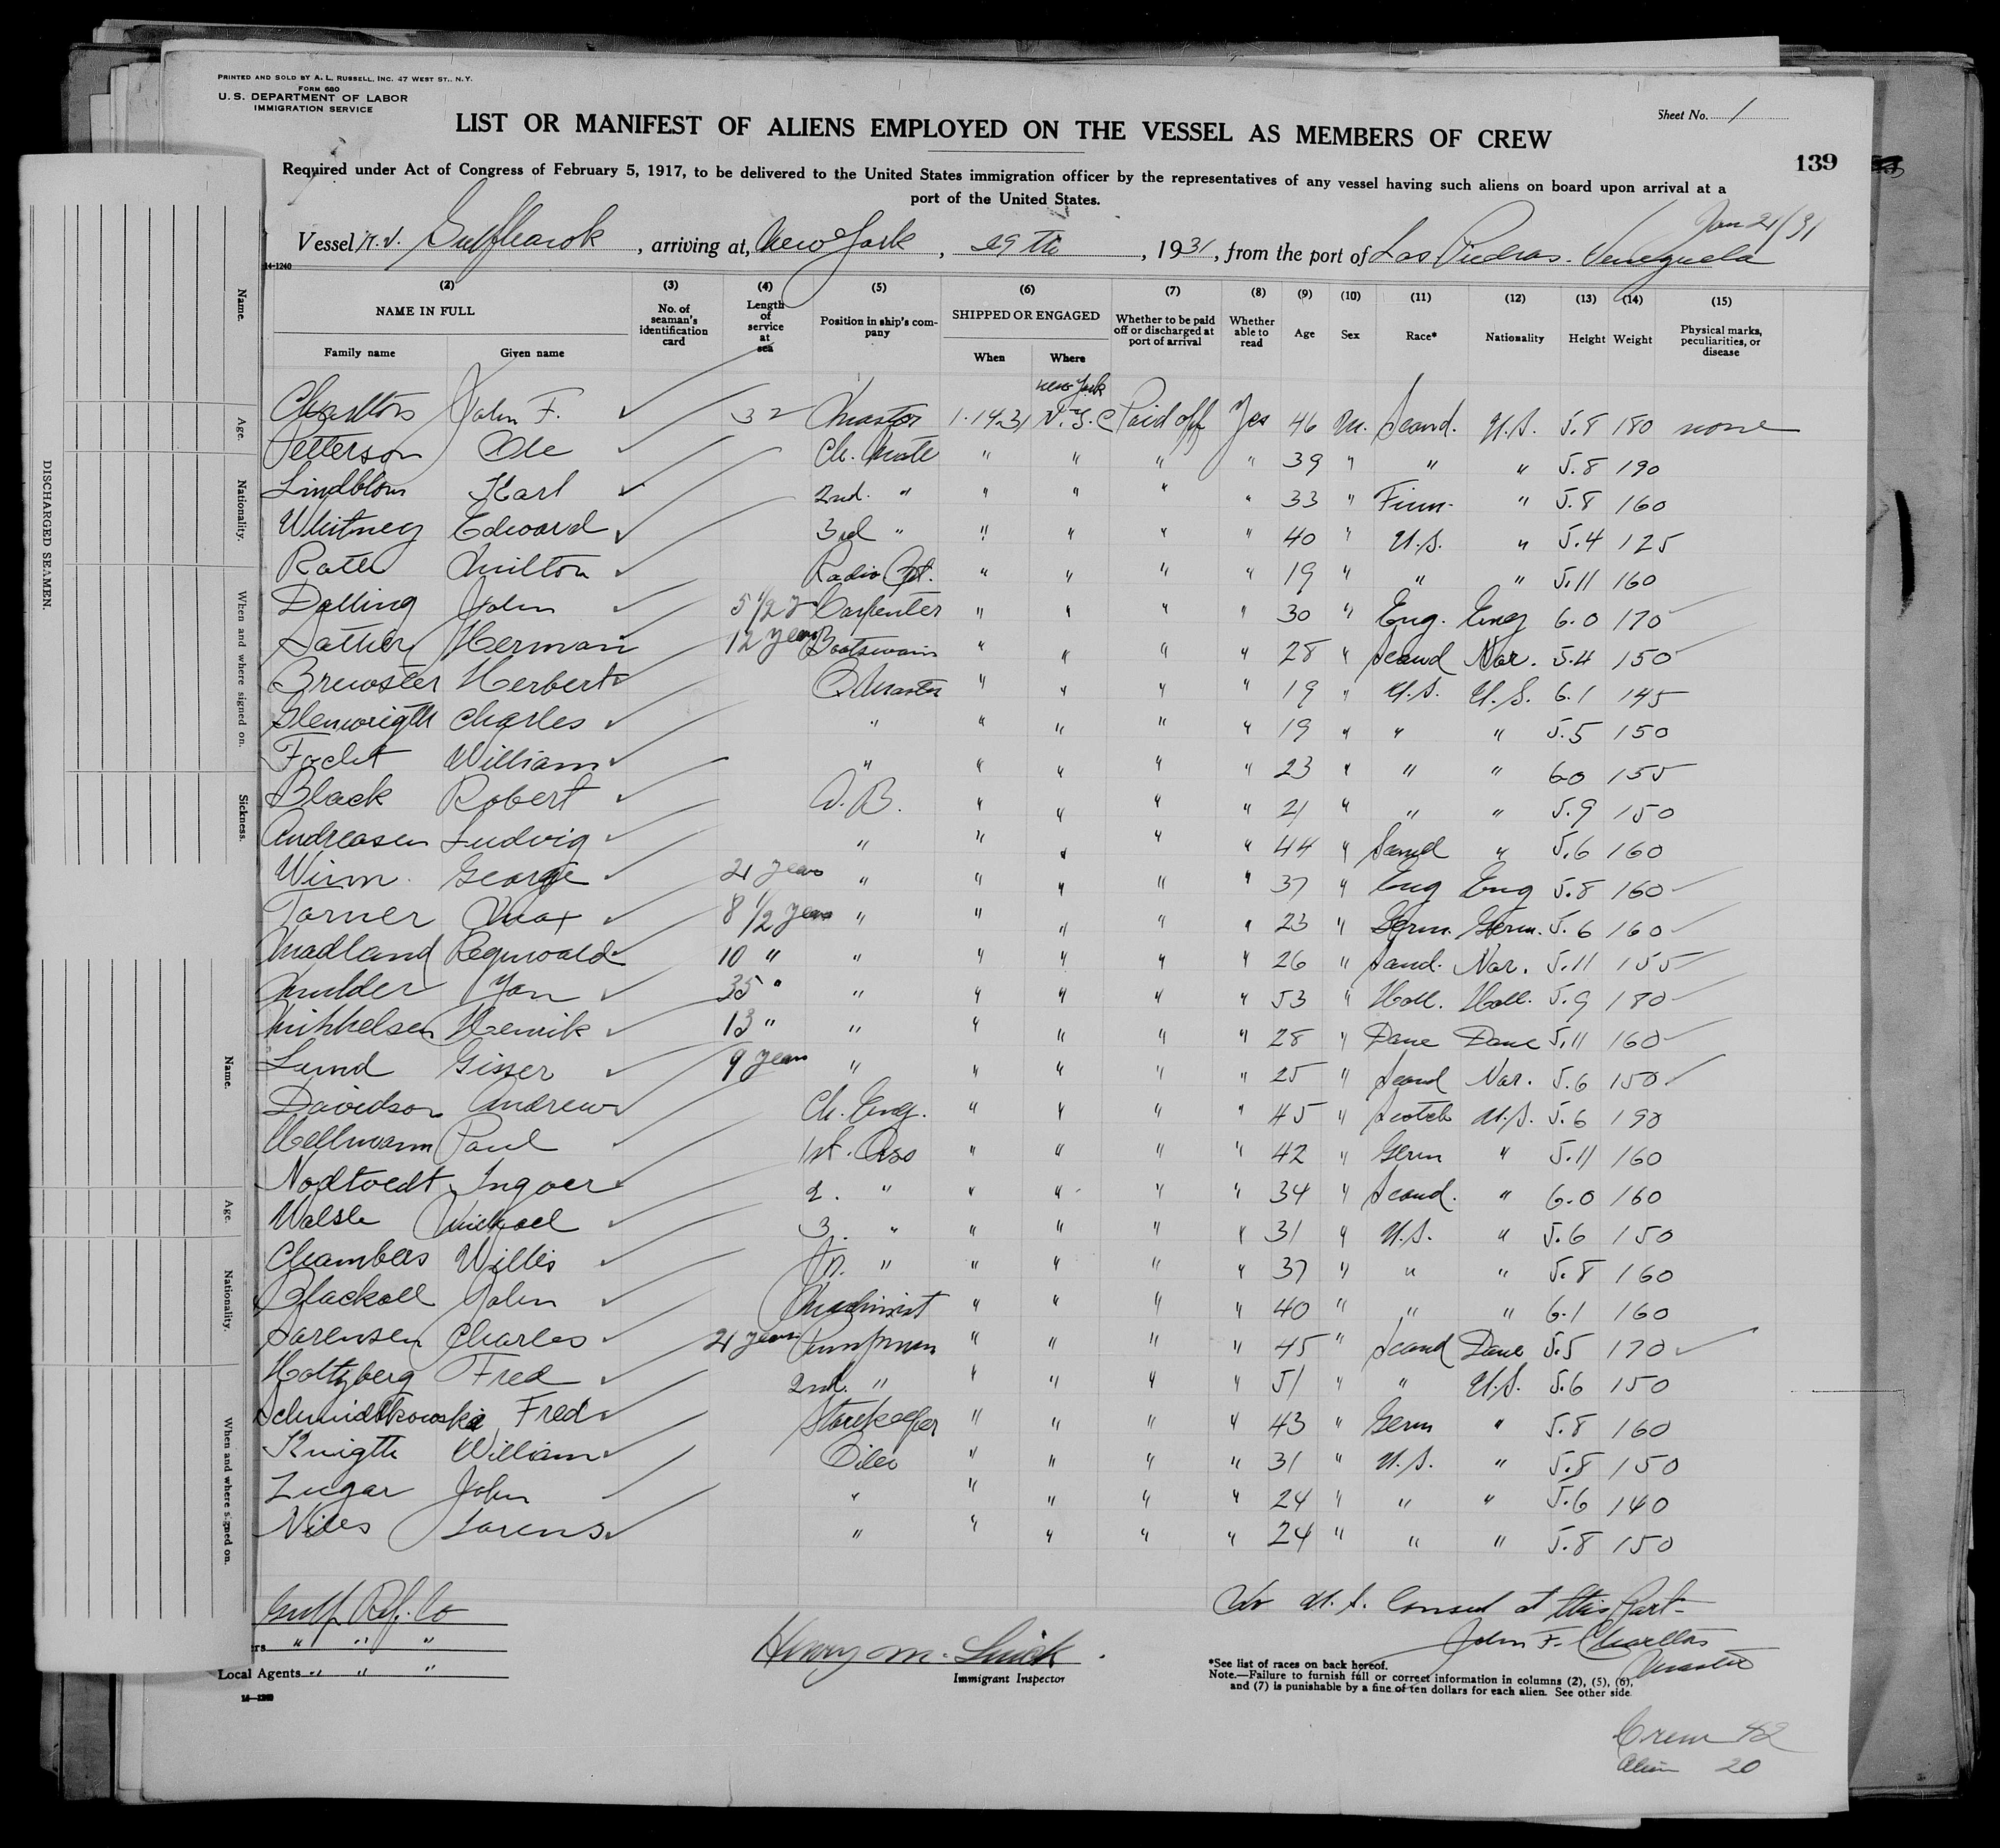 PRINTED AND SOLD BY A. L. RUSSELL, INC. 47 WEST ST., N.Y.
FORM 680
U. S. DEPARTMENT OF LABOR
IMMIGRATION SERVICE
Sheet No. 1
LIST OR MANIFEST OF ALIENS EMPLOYED ON THE VESSEL AS MEMBERS OF CREW
139
Required under Act of Congress of February 5, 1917, to be delivered to the United States immigration officer by the representatives of any vessel having such aliens on board upon arrival at a
port of the United States.
Jan 21/31
Vessel Gulfhawk, arriving at, New York, 29th, 1931, from the port of Las Piedras. Venezuela
14-1240
(2) (3) (4) (5) (6) (7) (8) (9) (10) (11) (12) (13) (14) (15)
NAME IN FULL No. of seaman's identification card Length of service at sea Position in ship's company SHIPPED OR ENGAGED Whether to be paid off or discharged at port of arrival Whether able to read Age Sex Race* Nationality Height Weight Physical marks, peculiarities, or disease
Family name Given name When Where
New York
Charlton John F. ✓ 32 Master 1.14.31 Paid off Yes 46 M. Scand. U.S. 5.8 180 none
Petterson Ole ✓ Ch. Mate " " " " 39 " " " 5.8 190
Lindblom Karl ✓ 2nd. " " " " " 33 " Finn. " 5.8 160
Whitney Edward ✓ 3rd " " " " " 40 " U.S. " 5.4 125
Rath Milton ✓ Radio Opt. " " " " 19 " " " 5.11 160
Dalling John ✓ 5 1/2 y Carpenter " " " " 30 " Eng. Eng 6.0 170
Sather Herman 12 years Boatswain " " " " 28 " Scand Nor. 5.4 150
Brewster Herbert ✓ Q Master " " " " 19 " U.S. U.S. 6.1 145
Glenwrigth Charles ✓ " " " " " 19 " " " 5.5 150
Foclet William ✓ " " " " " 23 " " " 6.0 155
Black Robert ✓ A.B. " " " " 21 " " " 5.9 150
Andreasen Ludvig ✓ " " " " " 44 " Scand " 5.6 160
Winn. George ✓ 21 years " " " " " 37 " Eng Eng 5.8 160
Torner Max ✓ 8 1/2 years " " " " " 23 " Germ. Germ. 5.6 160
Madland Reginwald ✓ 10 " " " " " " 26 " Scand. Nor. 5.11 155
Mulder Yan ✓ 35 " " " " " " 53 " Holl. Holl. 5.9 180
Mikkelsen Henrik ✓ 13 " " " " " " 28 " Dane Dane 5.11 160
Lund Gisser ✓ 9 years " " " " " 25 " Scand Nor. 5.6 150
Davidson Andrew ✓ Ch. Eng. " " " " 45 " Scotch U.S. 5.6 190
Hellmann Paul ✓ 1st. Ass " " " " 42 " Germ " 5.11 160
Nodtvedt Ingver ✓ 2. " " " " " 34 " Scand. " 6.0 160
Walsh Michael ✓ 3. " " " " " 31 " U.S. " 5.6 150
Chambers Willis ✓ Jr. " " " " " 37 " " " 5.8 160
Blackall John ✓ Machinist " " " " 40 " " " 6.1 160
Sorensen Charles ✓ 21 years Pumpman " " " " 45 " Scand Dane 5.5 170
Holtzberg Fred ✓ 2nd. " " " " " 51 " " U.S. 5.6 150
Schmidtkowski Fred ✓ Storekeeper " " " " 43 " Germ " 5.8 160
Knigth William ✓ Oiler " " " " 31 " U.S. " 5.8 150
Zugar John ✓ " " " " " 24 " " " 5.6 140
Niles Lorens ✓ " " " " " 24 " " " 5.8 150
Gulf Ref. Co
rs " " "
Local Agents " " "
14-1240
Henry M.
Immigrant Inspector
No U.S. Consul at this Port-
John F. Charlton
Master
*See list of races on back hereof.
Note.—Failure to furnish full or correct information in columns (2), (5), (6),
and (7) is punishable by a fine of ten dollars for each alien. See other side.
Crew 42
Alien 20
DISCHARGED SEAMEN.
Name.
Age.
Nationality.
When and where signed on.
Sickness.
Name.
Age.
Nationality.
When and where signed on.